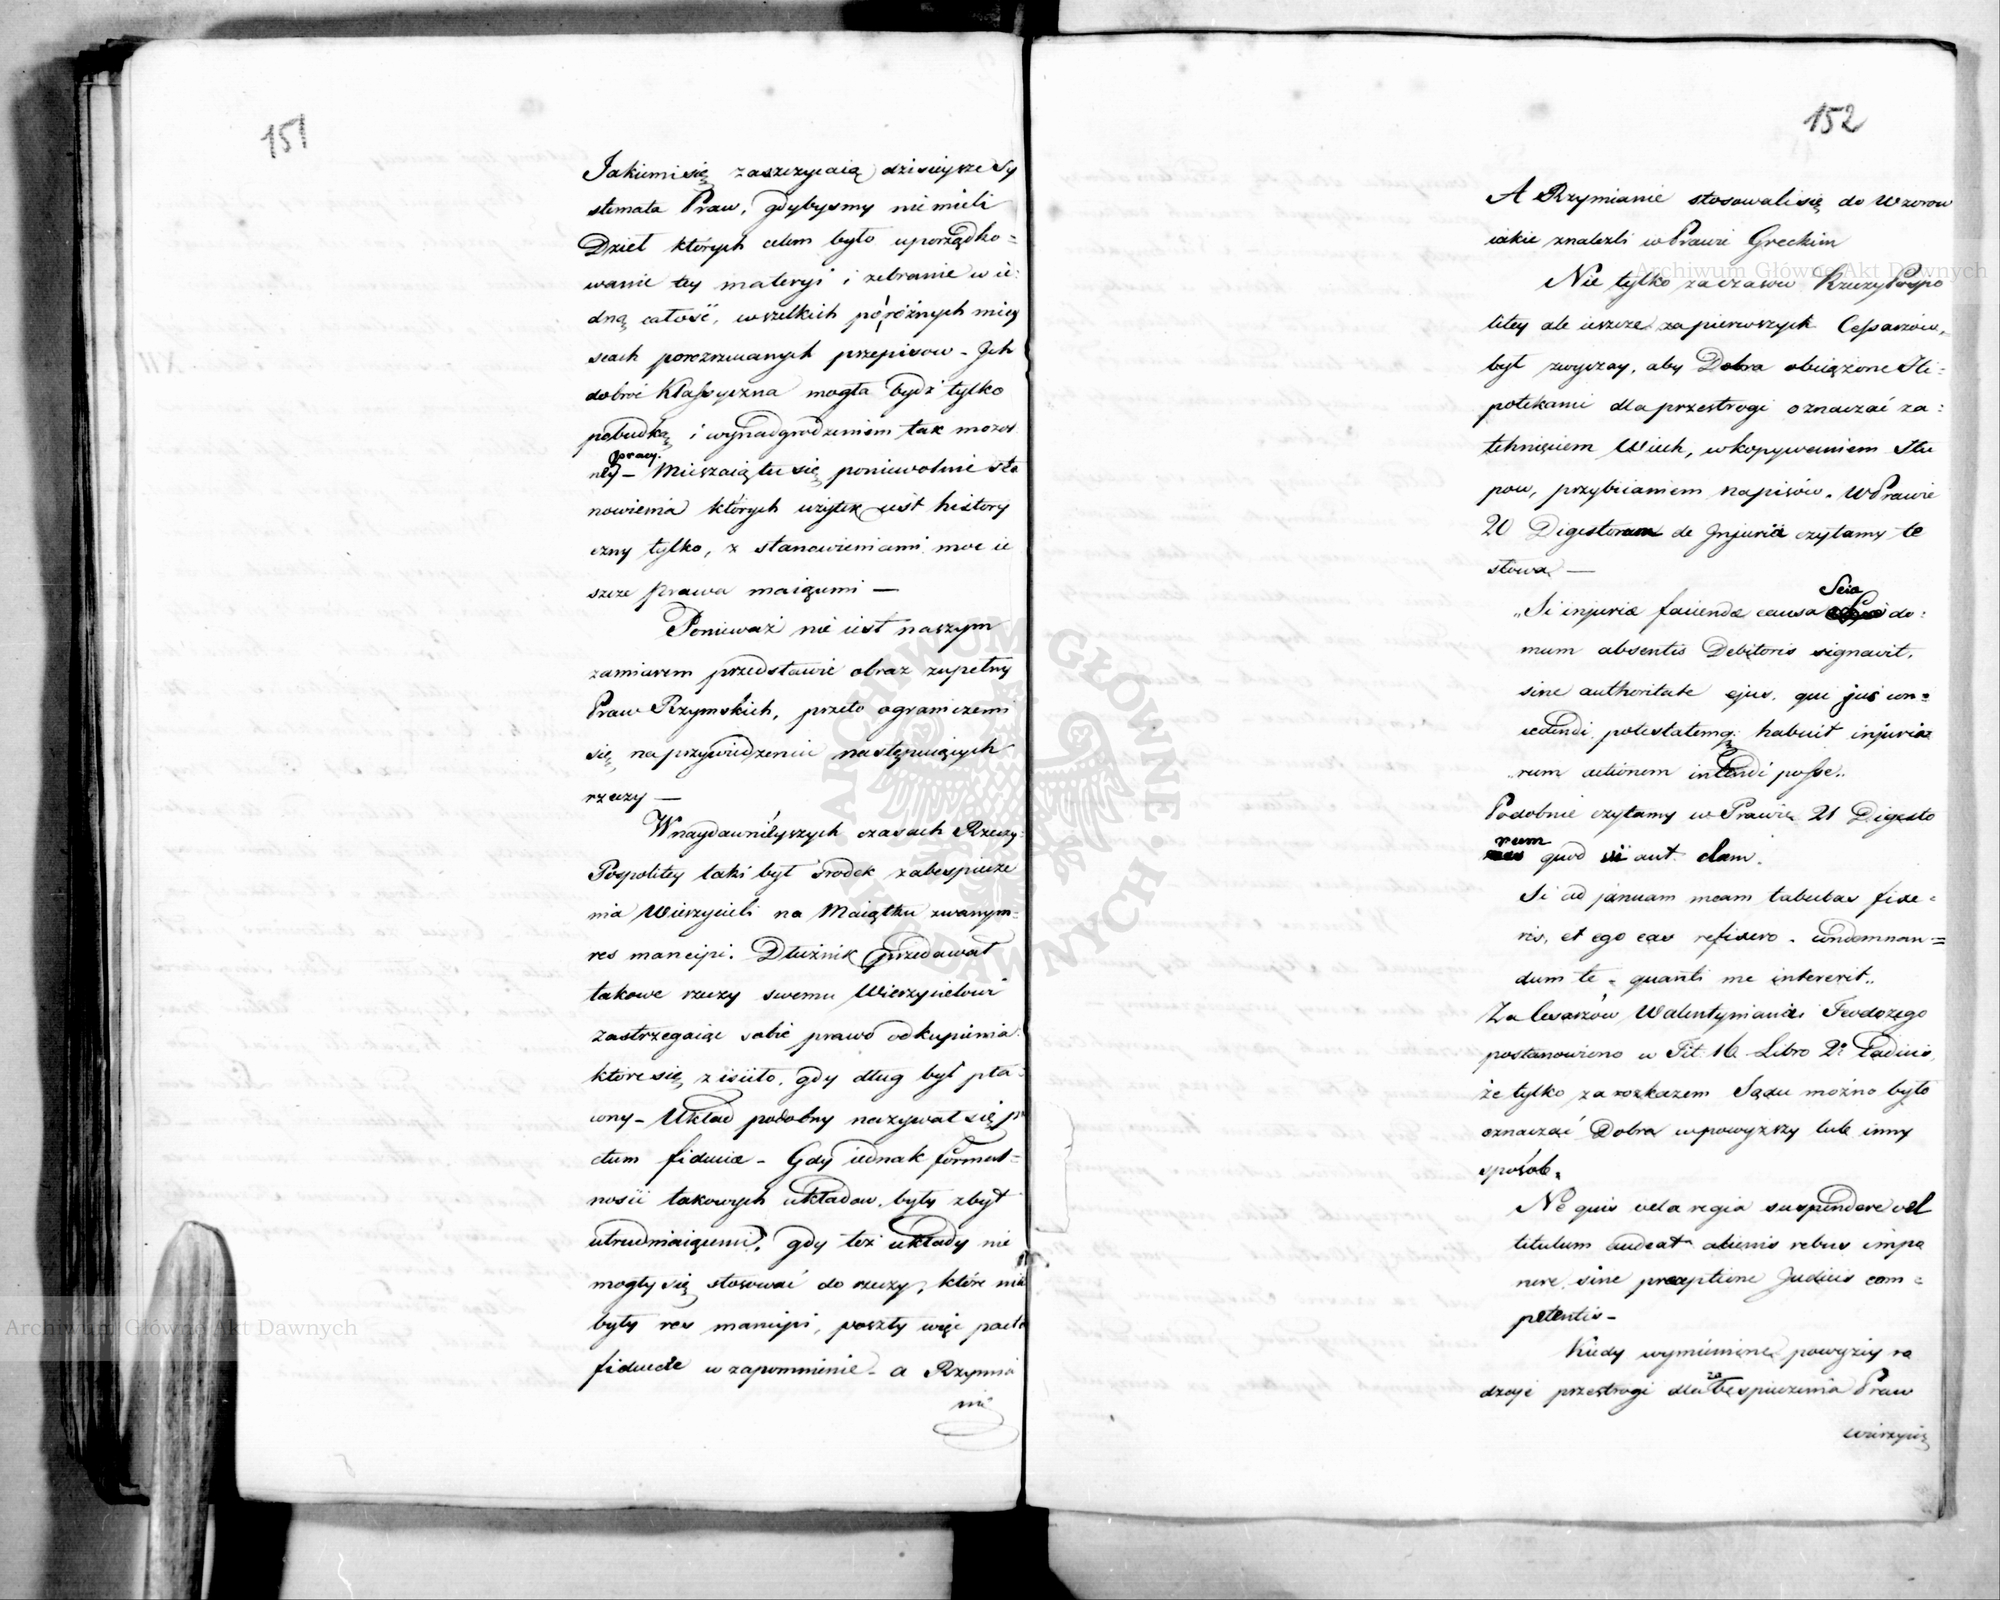 151
Jakiemi się zaszczycaią dzisieysze Sy
stemata Praw, gdybysmy nie mieli
Dzieł których celem było uporządko=
wanie tey materyi i zebranie w ie:
dną całość, wszelkich po różnych miey
scach porozrzucanych przepisow – Ich
dobroć Klassyczna mogła bydź tylko
pobudką i wynadgrodzeniem tak mozol
pracy.
ney – Mieszaią tu się poniewolnie sta
nowienia których użytek iest history
czny tylko, z stanowieniami moc ie
szcze prawa maiącemi —
Ponieważ nie iest naszym
zamiarem przedstawić obraz zupełny
Praw Rzymskich, przeto ograniczemi
się na przywiedzeniu następuiących
rzeczy —
W naydawnieyszych czasach Rzeczy:
Pospolitey taki był srodek zabespiecze
nia Wierzycieli na Maiątku zwanym=
res mancipi. Dłużnik przedawał
takowe rzeczy swemu Wierzycielowi
zastrzegaiąc sobie prawo odkupienia
które się ziściło, gdy dług był pła:
cony – Układ podobny nazywał się p
ctum fiduciæ – Gdy iednak formal=
nosci takowych układow, były zbyt
utrudniaiącemi, gdy też układy nie
mogły się stosować do rzeczy, które nie
były res mancipi, poszły więc pacta
fiduciæ w zapomnienie – a Rzymia
nie
152
A Rzymianie stosowali się do Wzorow
iakie znalezli w Prawie Greckim
Nie tylko za czasow Rzeczy Pospo
litey ale ieszcze za pierwszych Cessarzow,
był zwyczay, aby Dobra obciążone Hi:
potekami dla przestrogi oznaczać za:
tchnięciem Wiech, wkopywaniem Słu
pow, przybiianiem napisów. W Prawie
20 Digestorum de Injuria czytamy te
słowa —
Seia
„Si injuriæ faciendæ causa do:
mum absentis Debitoris signavit,
sine authoritate ejus, qui jus con=
cedendi potestatemq; habuit injuria
„rum actionem intendi posse„
Podobnie czytamy w Prawie 21 Digesto
rum
quod vi aut clam.
Si ad januam meam tabulas fixe=
ris, et ego eas refixero. condemnan=
dum te – quanti me intererit„
Za Cesarzów Walentyniana i Teodozego
postanowiono w Tit. 16 Libro 2º Codicis,
że tylko za rozkazem Sądu można było
oznaczać Dobra w powyzszy lub inny
sposób.
Ne quis vela regia suspendere vel
titulum audeat alienis rebus impo
nere, sine præceptione Judicis com=
petentis –
Kiedy wymienione powyżey ro
za
dzaje przestrogi dla bespieczenia Praw
wierzycie
Archiwum Główne Akt Dawnych
Archiwum Główne Akt Dawnych
ARCHIWUM GŁÓWNE AKT DAWNYCH